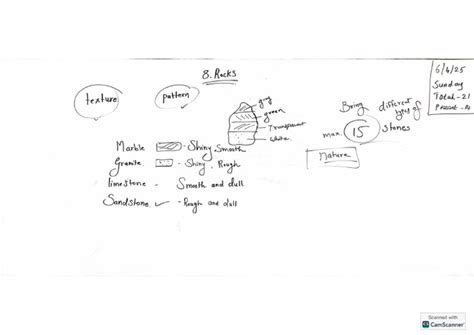 8. Rocks
6/4/25
Sunday
Total-21
texture
pattern
gray
green
Transparent
white
Bring different types of
max. 15 stones
Nature
Marble - Shiny, Smooth
Granite - Shiny, Rough
limestone - Smooth and dull
Sandstone ✓ - Rough and dull
Scanned with
CamScanner